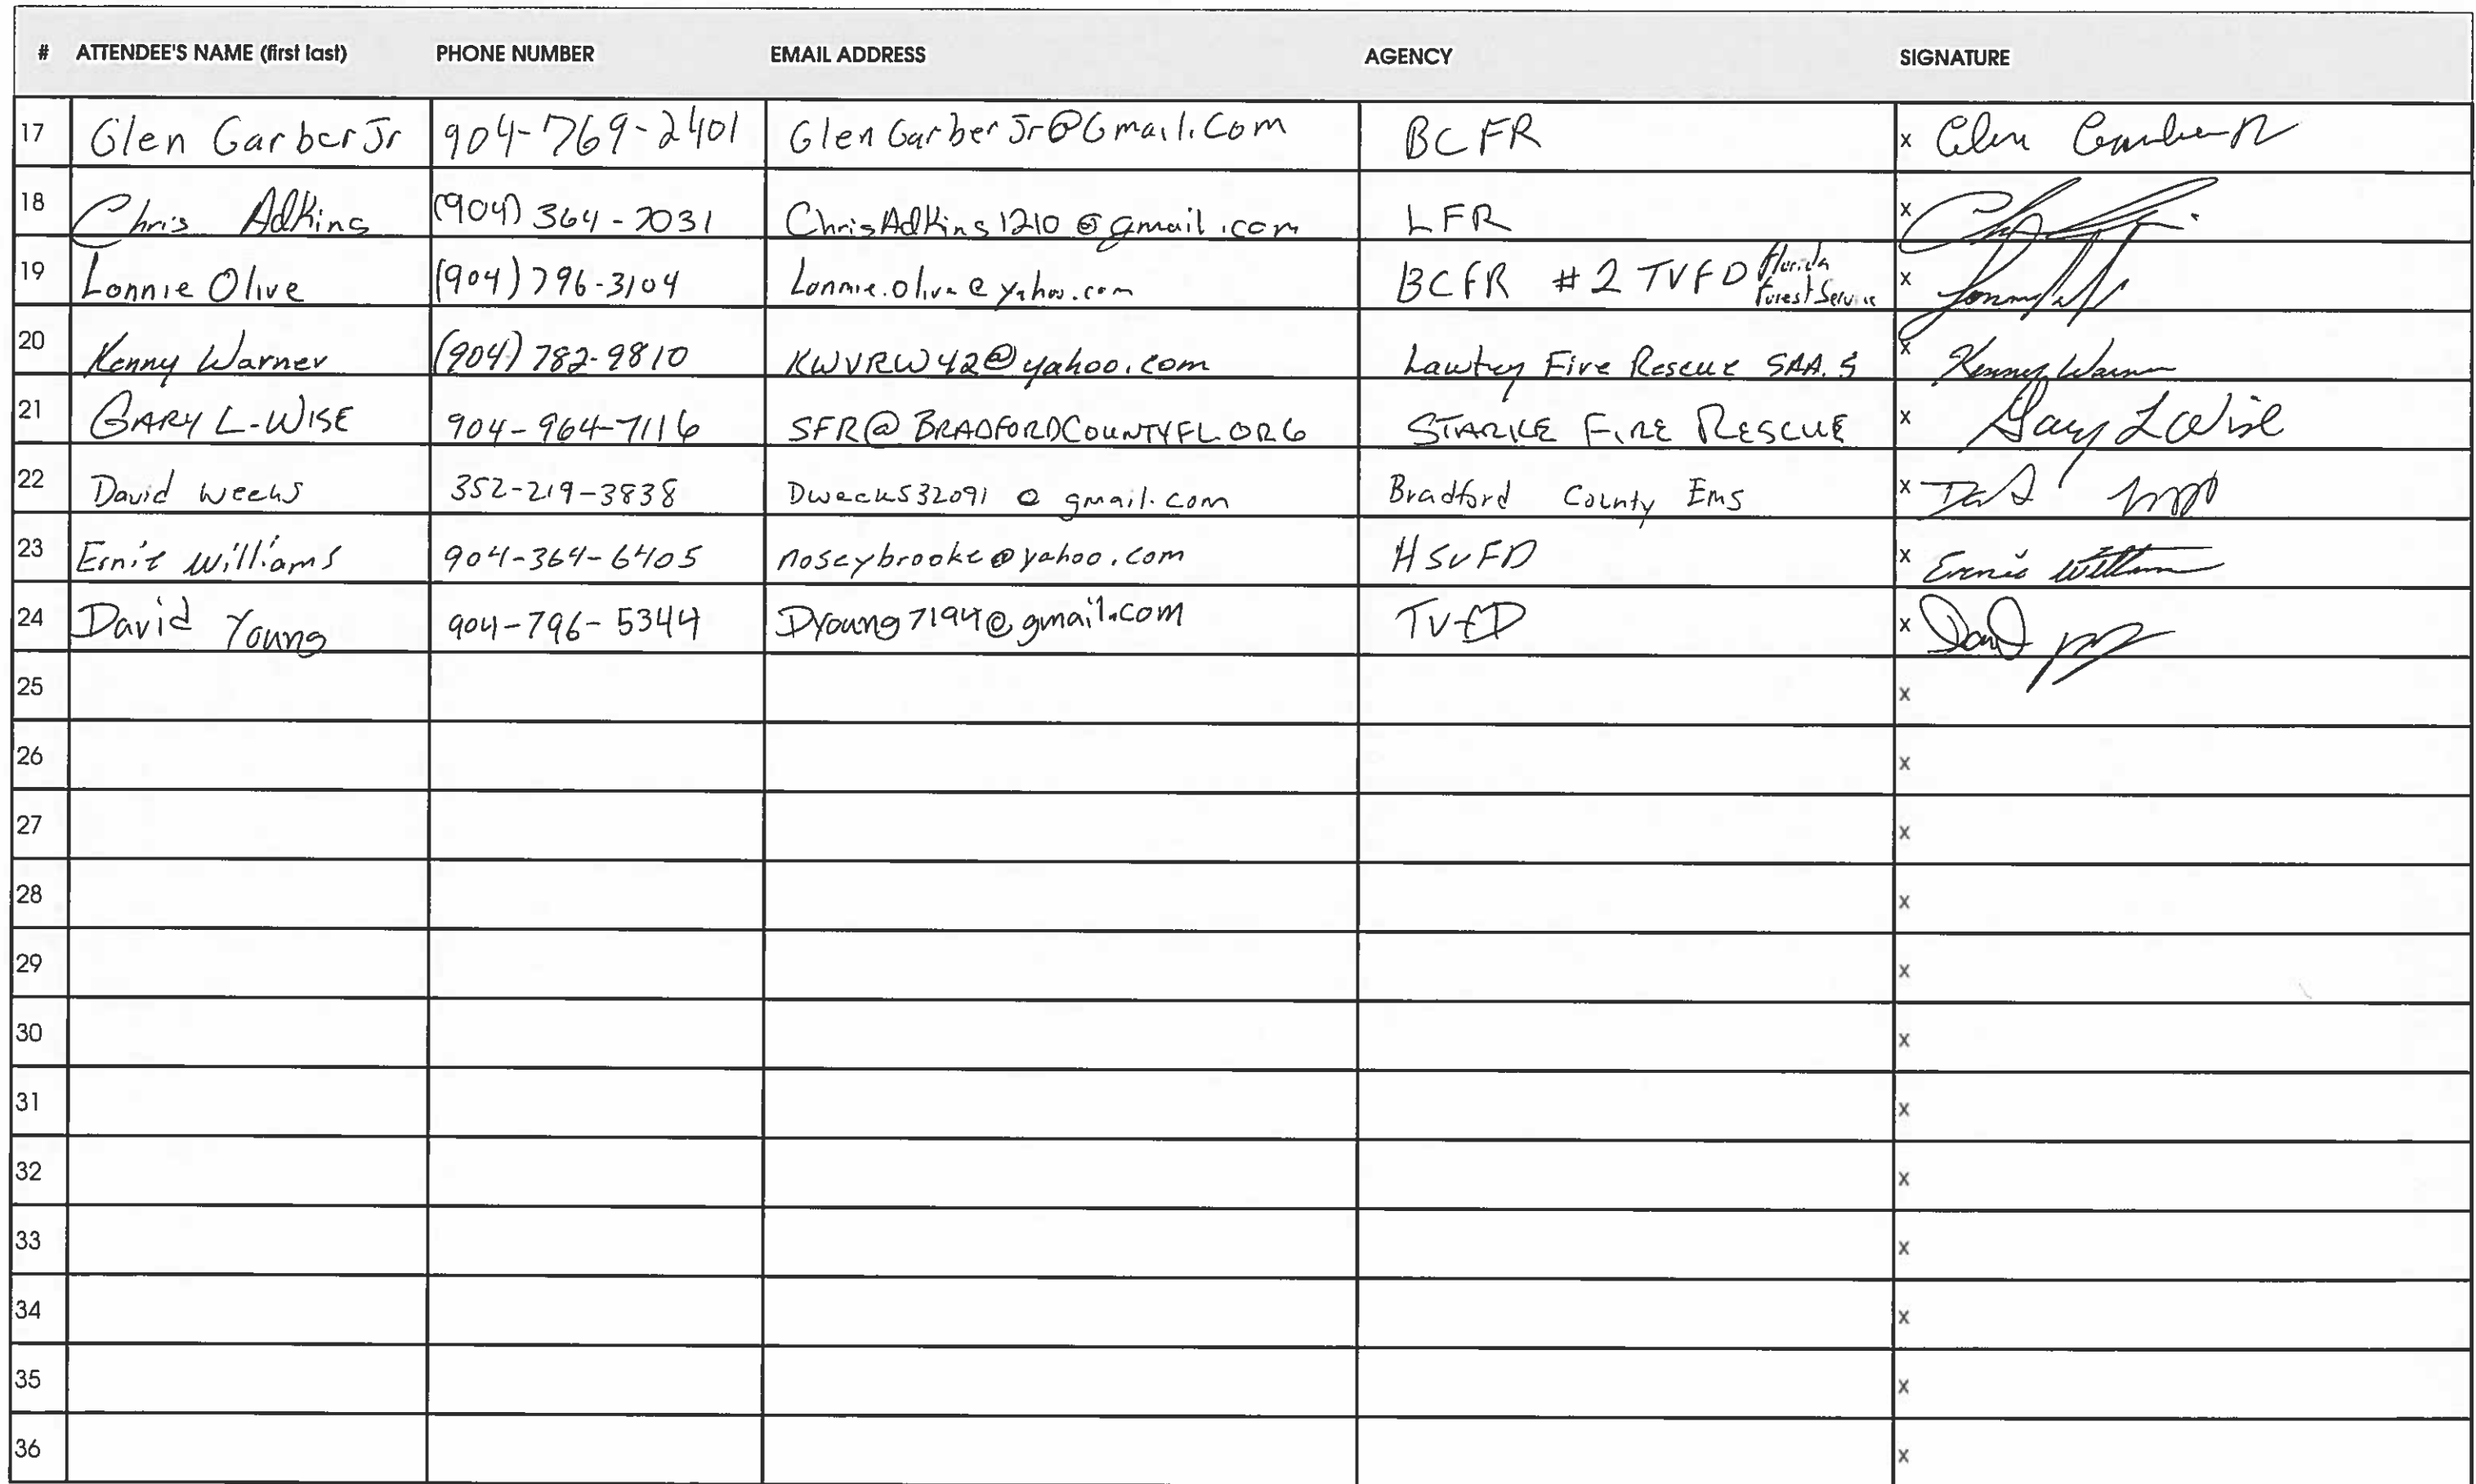 # ATTENDEE'S NAME (first last) PHONE NUMBER EMAIL ADDRESS AGENCY SIGNATURE
17 Glen Garber Jr 904-769-2401 GlenGarberJr@Gmail.Com BCFR x Glen Garber Jr
18 Chris Adkins (904) 364-7031 ChrisAdkins1210@gmail.com LFR x
19 Lonnie Olive (904) 796-3104 Lonnie.olive@yahoo.com BCFR #2 TVFD Florida Forest Service x
20 Kenny Warner (904) 782-9810 KWVRW42@yahoo.com Lawtey Fire Rescue x Kenny Warner
21 GARY L. WISE 904-964-7116 SFR@BRADFORDCOUNTYFL.ORG STARKE FIRE RESCUE x Gary L Wise
22 David Weeks 352-219-3838 Dweeks32091@gmail.com Bradford County Ems x
23 Ernie Williams 904-364-6405 noseybrooke@yahoo.com HSVFD x Ernie Williams
24 David Young 904-796-5344 DYoung7194@gmail.com TVFD x David
25 x
26 x
27 x
28 x
29 x
30 x
31 x
32 x
33 x
34 x
35 x
36 x